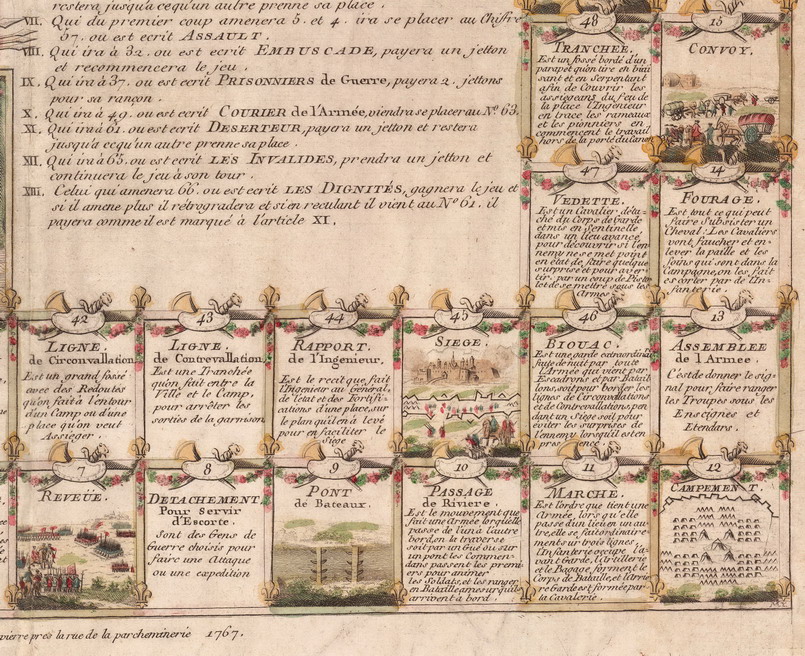 restera jusqu'a cequ'un autre prenne sa place.
VII. Qui du premier coup amenera 5. et 4. ira se placer au Chiffre
57. ou est ecrit ASSAULT.
VIII. Qui ira à 32. ou est ecrit EMBUSCADE, payera un jetton
et recommencera le jeu.
IX. Qui ira à 37. ou est ecrit PRISONNIERS de Guerre, payera 2. jettons
pour sa rançon.
X. Qui ira à 49. ou est ecrit COURIER de l'Armée, viendra se placer au No. 63.
XI. Qui ira à 61. ou est ecrit DESERTEUR, payera un jetton et restera
jusqu'a cequ'un autre prenne sa place.
XII. Qui ira à 65. ou est ecrit LES INVALIDES, prendra un jetton et
continuera le jeu à son tour.
XIII. Celui qui amenera 66. ou est ecrit LES DIGNITÉS, gagnera le jeu et
si il amene plus il rétrogradera et si en reculant il vient au No 61. il
payera comme il est marqué à l'article XI.
48
TRANCHÉE.
Est un fossé bordé d'un
parapet qu'on tire en biai
sant et en Serpentant
afin de Couvrir les
assiegeant du feu de
la place. L'Ingenieur
en trace les rameaux
et les pionniers en
commencent le travail
hors de la porté du canon
15
CONVOY.
47
VEDETTE.
Est un Cavalier déta-
ché du Corps de Garde
et mis en Sentinelle
dans un lieu avancé
pour découvrir si l'en
nemy ne se met point
en état de faire quelque
surprise et pour aver
tir par un coup de Pisto
let de se mettre sous les
Armes.
14
FOURAGE.
Est tout ce qui peut
faire Subsister un
Cheval: Les Cavaliers
vont faucher et en-
lever la paille et les
foins qui sont dans la
Campagne, on les fait
escorter par de l'In-
fanterie.
42
LIGNE.
de Circonvallation.
Est un grand fossé
avec des Redoutes
qu'on fait à l'entour
d'un Camp ou d'une
place qu'on veut
Assieger.
43
LIGNE.
de Contrevallation.
Est une Tranchée
qu'on fait entre la
Ville et le Camp,
pour arrêter les
sorties de la garnison
44
RAPPORT.
de l'Ingenieur.
Est le recit que fait
l'Ingenieur au General,
de l'état et des Fortifi-
cations d'une place, sur
le plan qu'il en à levé
pour en faciliter le
Siege
45
SIEGE.
46
BIOUAC.
Est une garde extraordinai
faite de nuit par toute
Armée qui vient par
Escadrons et par Batail
lons, soit pour border les
lignes de Circonvallations
et de Contrevallations, pen
dant un Siege soit pour
éviter les surprises de
l'ennemy lorsqu'il est en
presence.
13
ASSEMBLEE
de l'Armee.
C'est de donner le sig-
nal pour faire ranger
les Troupes sous les
Enseignes et
Etendars.
7
REVEÜE.
8
DETACHEMENT.
Pour Servir
d'Escorte.
Sont des Gens de
Guerre choisis pour
faire une Attaque
ou une expedition
9
PONT
de Bateaux.
10
PASSAGE
de Riviere.
Est le mouvement que
fait une Armée lorqu'elle
passe de l'un à l'autre
bord, on la traverse
soit par un Gué ou sur
un pont les Commen-
dans passent les premi
ers pour animer
les Soldats, et les ranger
en Bataille amesur qu'il
arrivent à bord.
11
MARCHE.
Est l'ordre que tient une
Armée, lors qu'elle
passe d'un lieu en un au-
tre, elle se fait ordinaire
ment sur trois lignes,
l'Infanterie occupe l'a-
vant Garde, l'Artillerie
et le Bagage, forment le
Corps de Bataille, et l'Arrie
re Garde est formée par
la Cavalerie.
12
CAMPEMENT.
pierre pres la rue de la parcheminerie 1767.